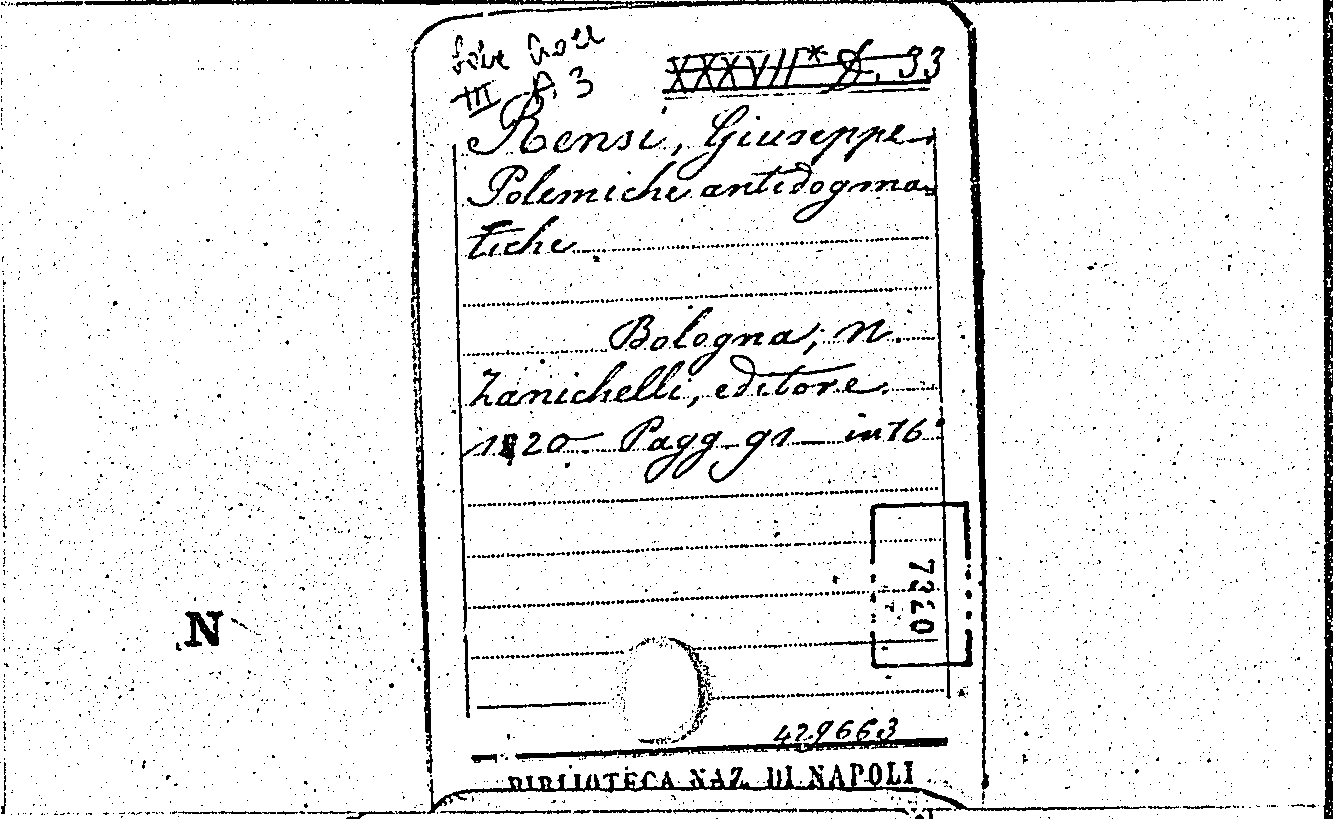 III A. 3
XXXVII* D. 33
Rensi, Giuseppe.
Polemiche antidogma-
tiche
Bologna, N.
Zanichelli, editore.
1920. Pagg. 91 – in 16°
7320
N
429663
BIBLIOTECA NAZ. DI NAPOLI